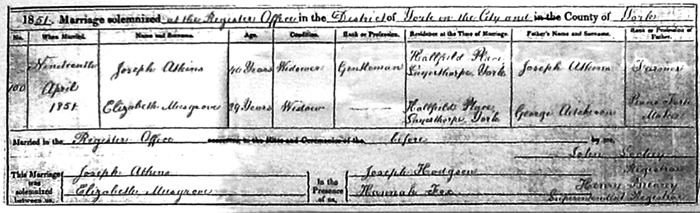 1851. Marriage solemnized at the Register Office in the District of York in the City and in the County of York
No. When Married. Name and Surname. Age. Condition. Rank or Profession. Residence at the Time of Marriage. Father's Name and Surname. Rank or Profession of Father.
100 Nineteenth April 1851 Joseph Atkins 40 Years Widower Gentleman Hallfield Place, York Joseph Atkins Farmer
Elizabeth Musgrove 29 Years Widow Hallfield Place York George Piano Forte Maker
Married in the Register Office according to the Rites and Ceremonies of the before by me,
This Marriage was solemnized between us, Joseph Atkins Elizabeth Musgrove In the Presence of us, Joseph Hodgson Hannah Fox John Registrar
Henry Superintendent Registrar